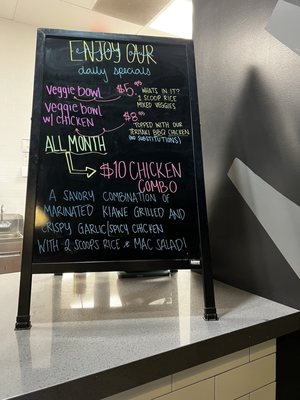 ENJOY OUR
daily specials
Veggie bowl $5.
WHAT'S IN IT?
2 SCOOP RICE
MIXED VEGGIES
Veggie bowl
w/ CHICKEN
$8
TOPPED WITH OUR
TERIYAKI BBQ CHICKEN
(NO SUBSTITUTIONS)
ALL MONTH
$10 CHICKEN
COMBO
A SAVORY COMBINATION OF
MARINATED KIAWE GRILLED AND
CRISPY GARLIC/SPICY CHICKEN
WITH 2 SCOOPS RICE & MAC SALAD!